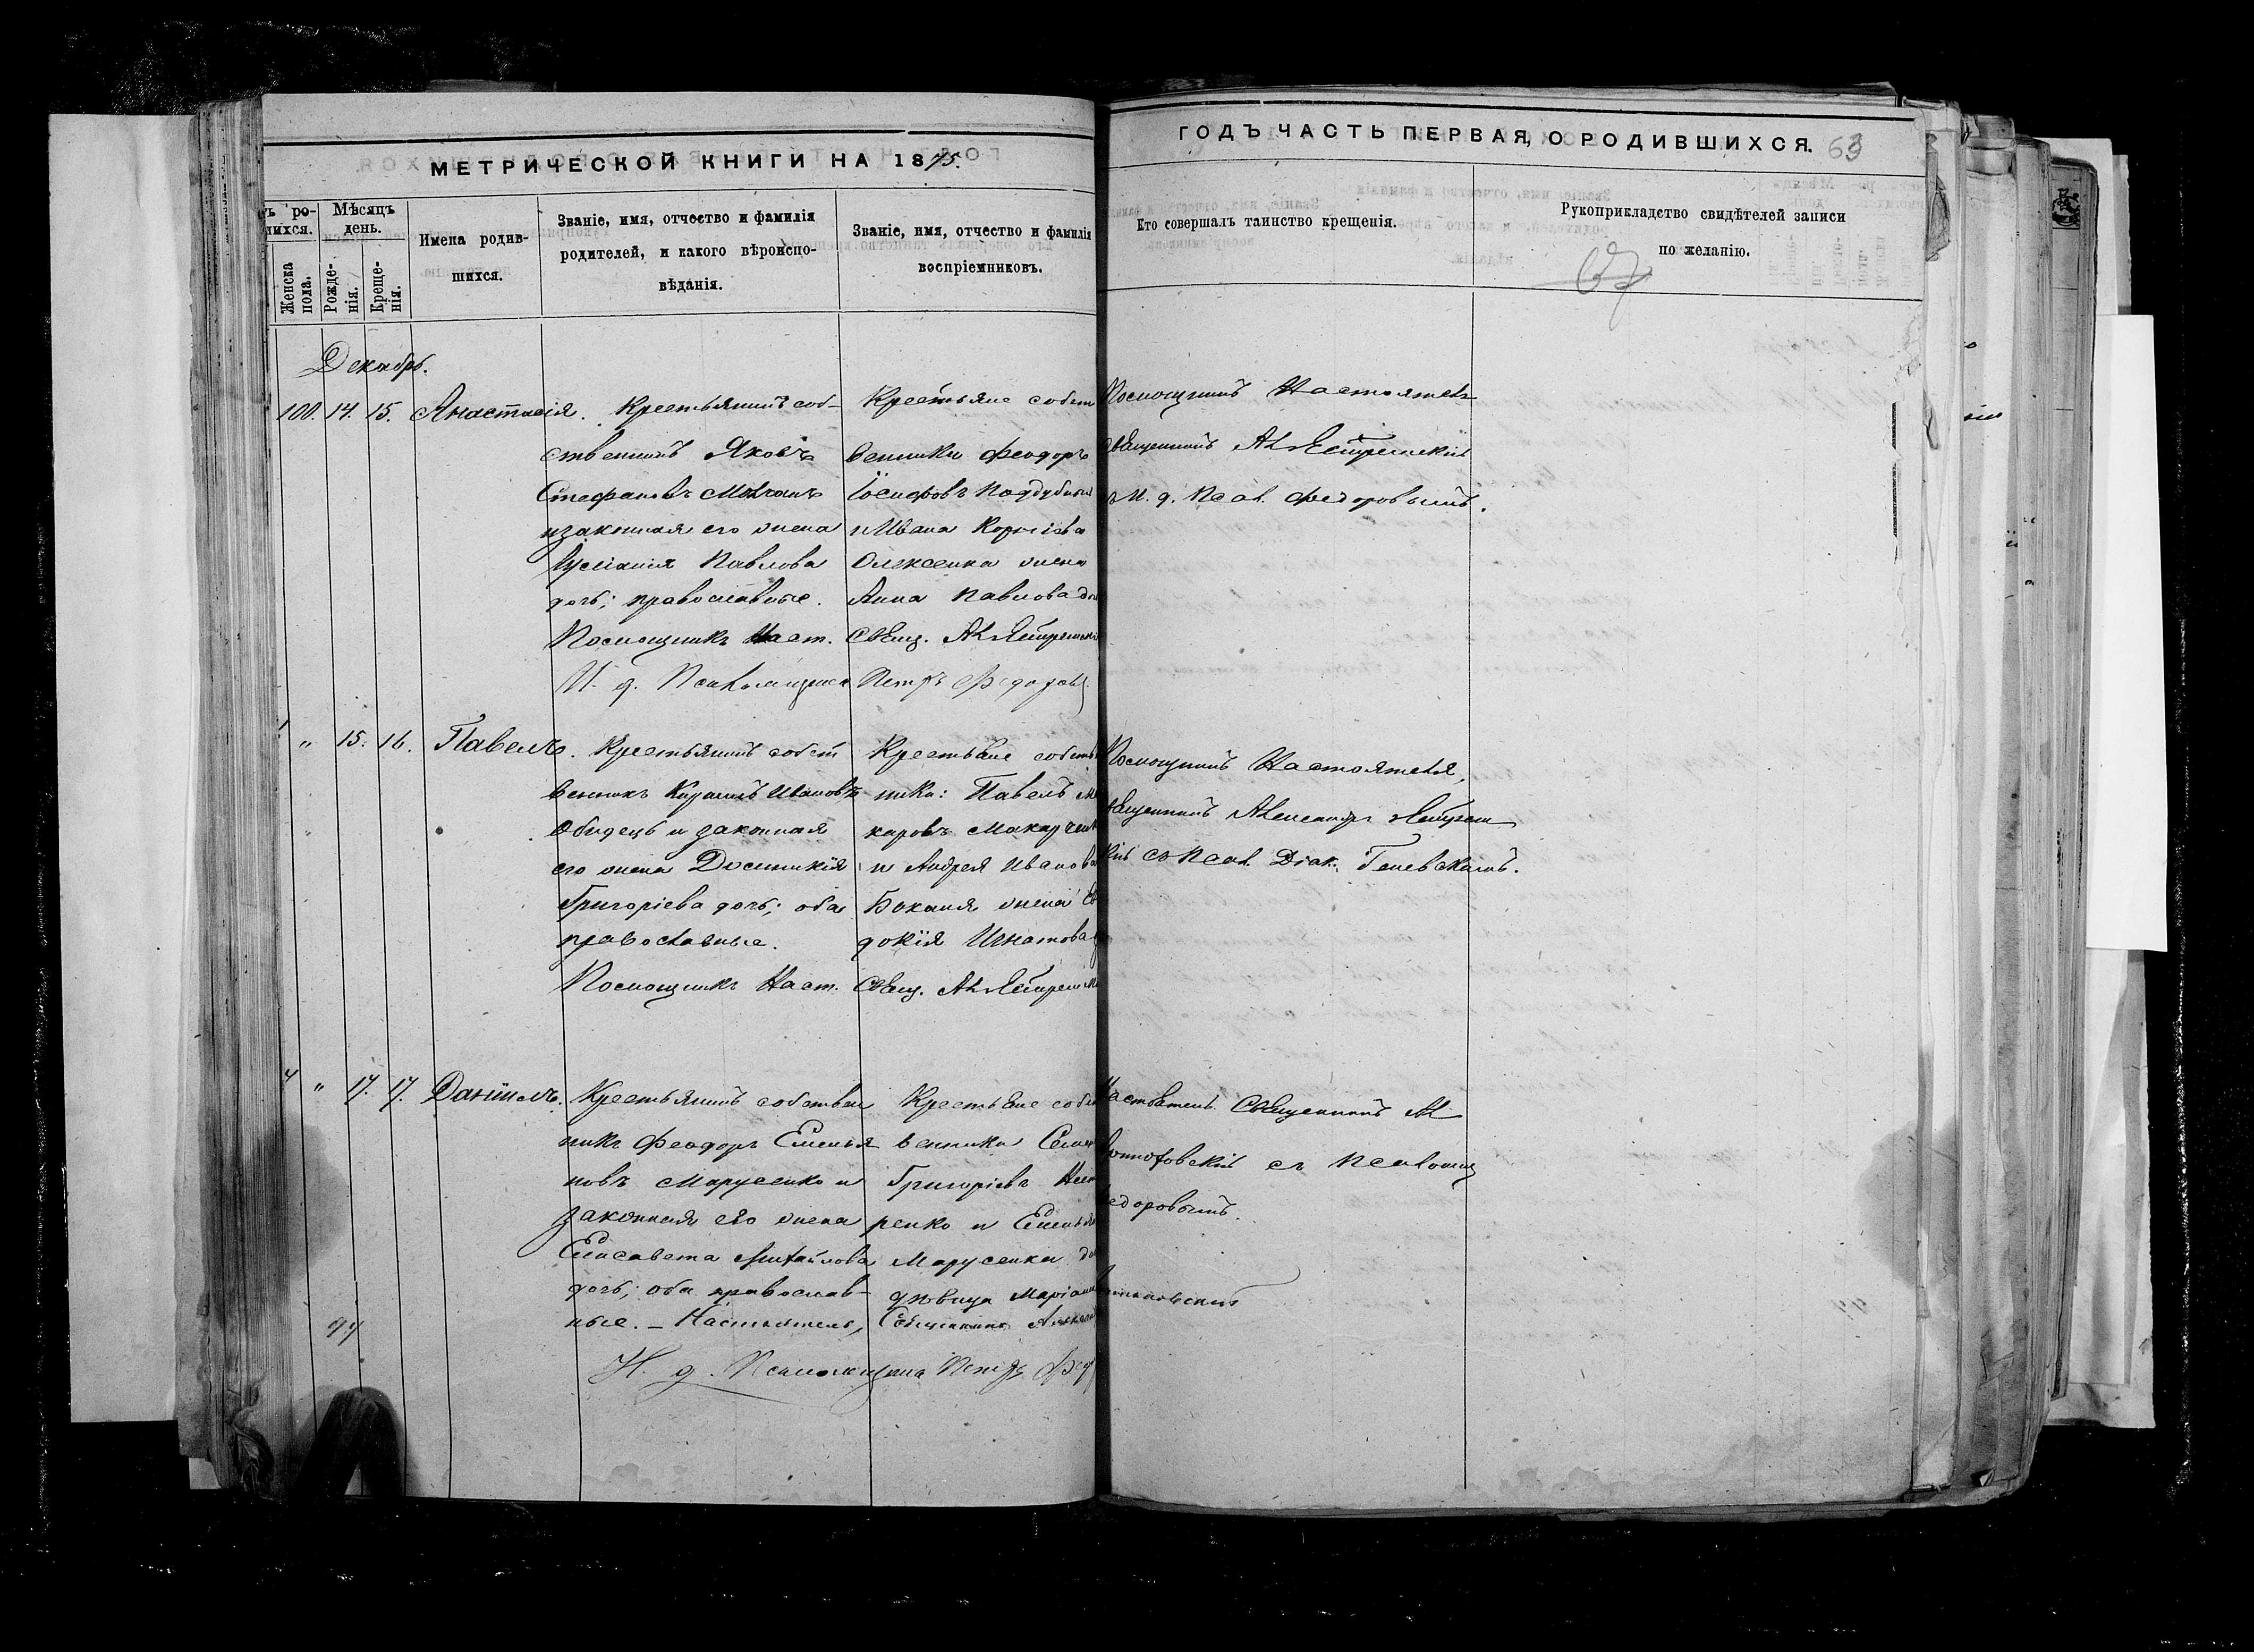 МЕТРИЧЕСКОЙ КНИГИ НА 1875.
ГОДЪ ЧАСТЬ ПЕРВАЯ, О РОДИВШИХСЯ. 63
ъ ро-
шихся.
Женска пола.
Мѣсяцъ день.
Рожде-нія.
Креще-нія.
Имена родив-
шихся.
Званіе, имя, отчество и фамилія
родителей, и какого вѣроиспо-
вѣданія.
Званіе, имя, отчество и фамилія
воспріемниковъ.
Кто совершалъ таинство крещенія.
Рукоприкладство свидѣтелей записи
по желанію.
67
Декабрь.
100. 14. 15. Анастасія.
Крестьянинъ соб-
ственникъ Яковъ
Стефановъ
и законная его жена
Павлова
дочь; православные.
Помощникъ Наст.
И. д. Псаломщика
Крестьяне собст
венники Феодоръ
Іосифовъ Поддубный
и Ивана Корніева
Олексенка жена
Анна Павлова до
Свящ. Ал.
Петръ Федоров
Помощникъ Настоятеля
священникъ Ал.
и. д. Псал. Федоровымъ.
" 15. 16. Павелъ.
Крестьянинъ собст
венникъ Кириллъ Ивановъ
Обидецъ и законная
его жена Домникія
Григоріева дочь; оба
православные.
Помощникъ Наст.
Крестьяне собств
ники: Павелъ Ма
каровъ Макарченк
и Андрея Иванова
Боканя жена Ев
докія Игнатова
Свящ. Ал.
Помощникъ Настоятеля,
священникъ Александръ
кій съ Псал. Діак.
4 " 17. 17. Даніилъ.
Крестьянинъ собствен
никъ Феодоръ Емелья
новъ Марусенко и
законная его жена
Елисавета Михайлова
дочь; оба православ-
ные. – Настоятель,
И. д. Псаломщика
Крестьяне собст
венники Семенъ
Григоріевъ Несте
ренко и Емельян
Марусенка до
дѣвица Маріанна
Священникъ Александ
Петръ Фед
Настоятель Священникъ Ал
съ Псаломщ
едоровымъ.
97